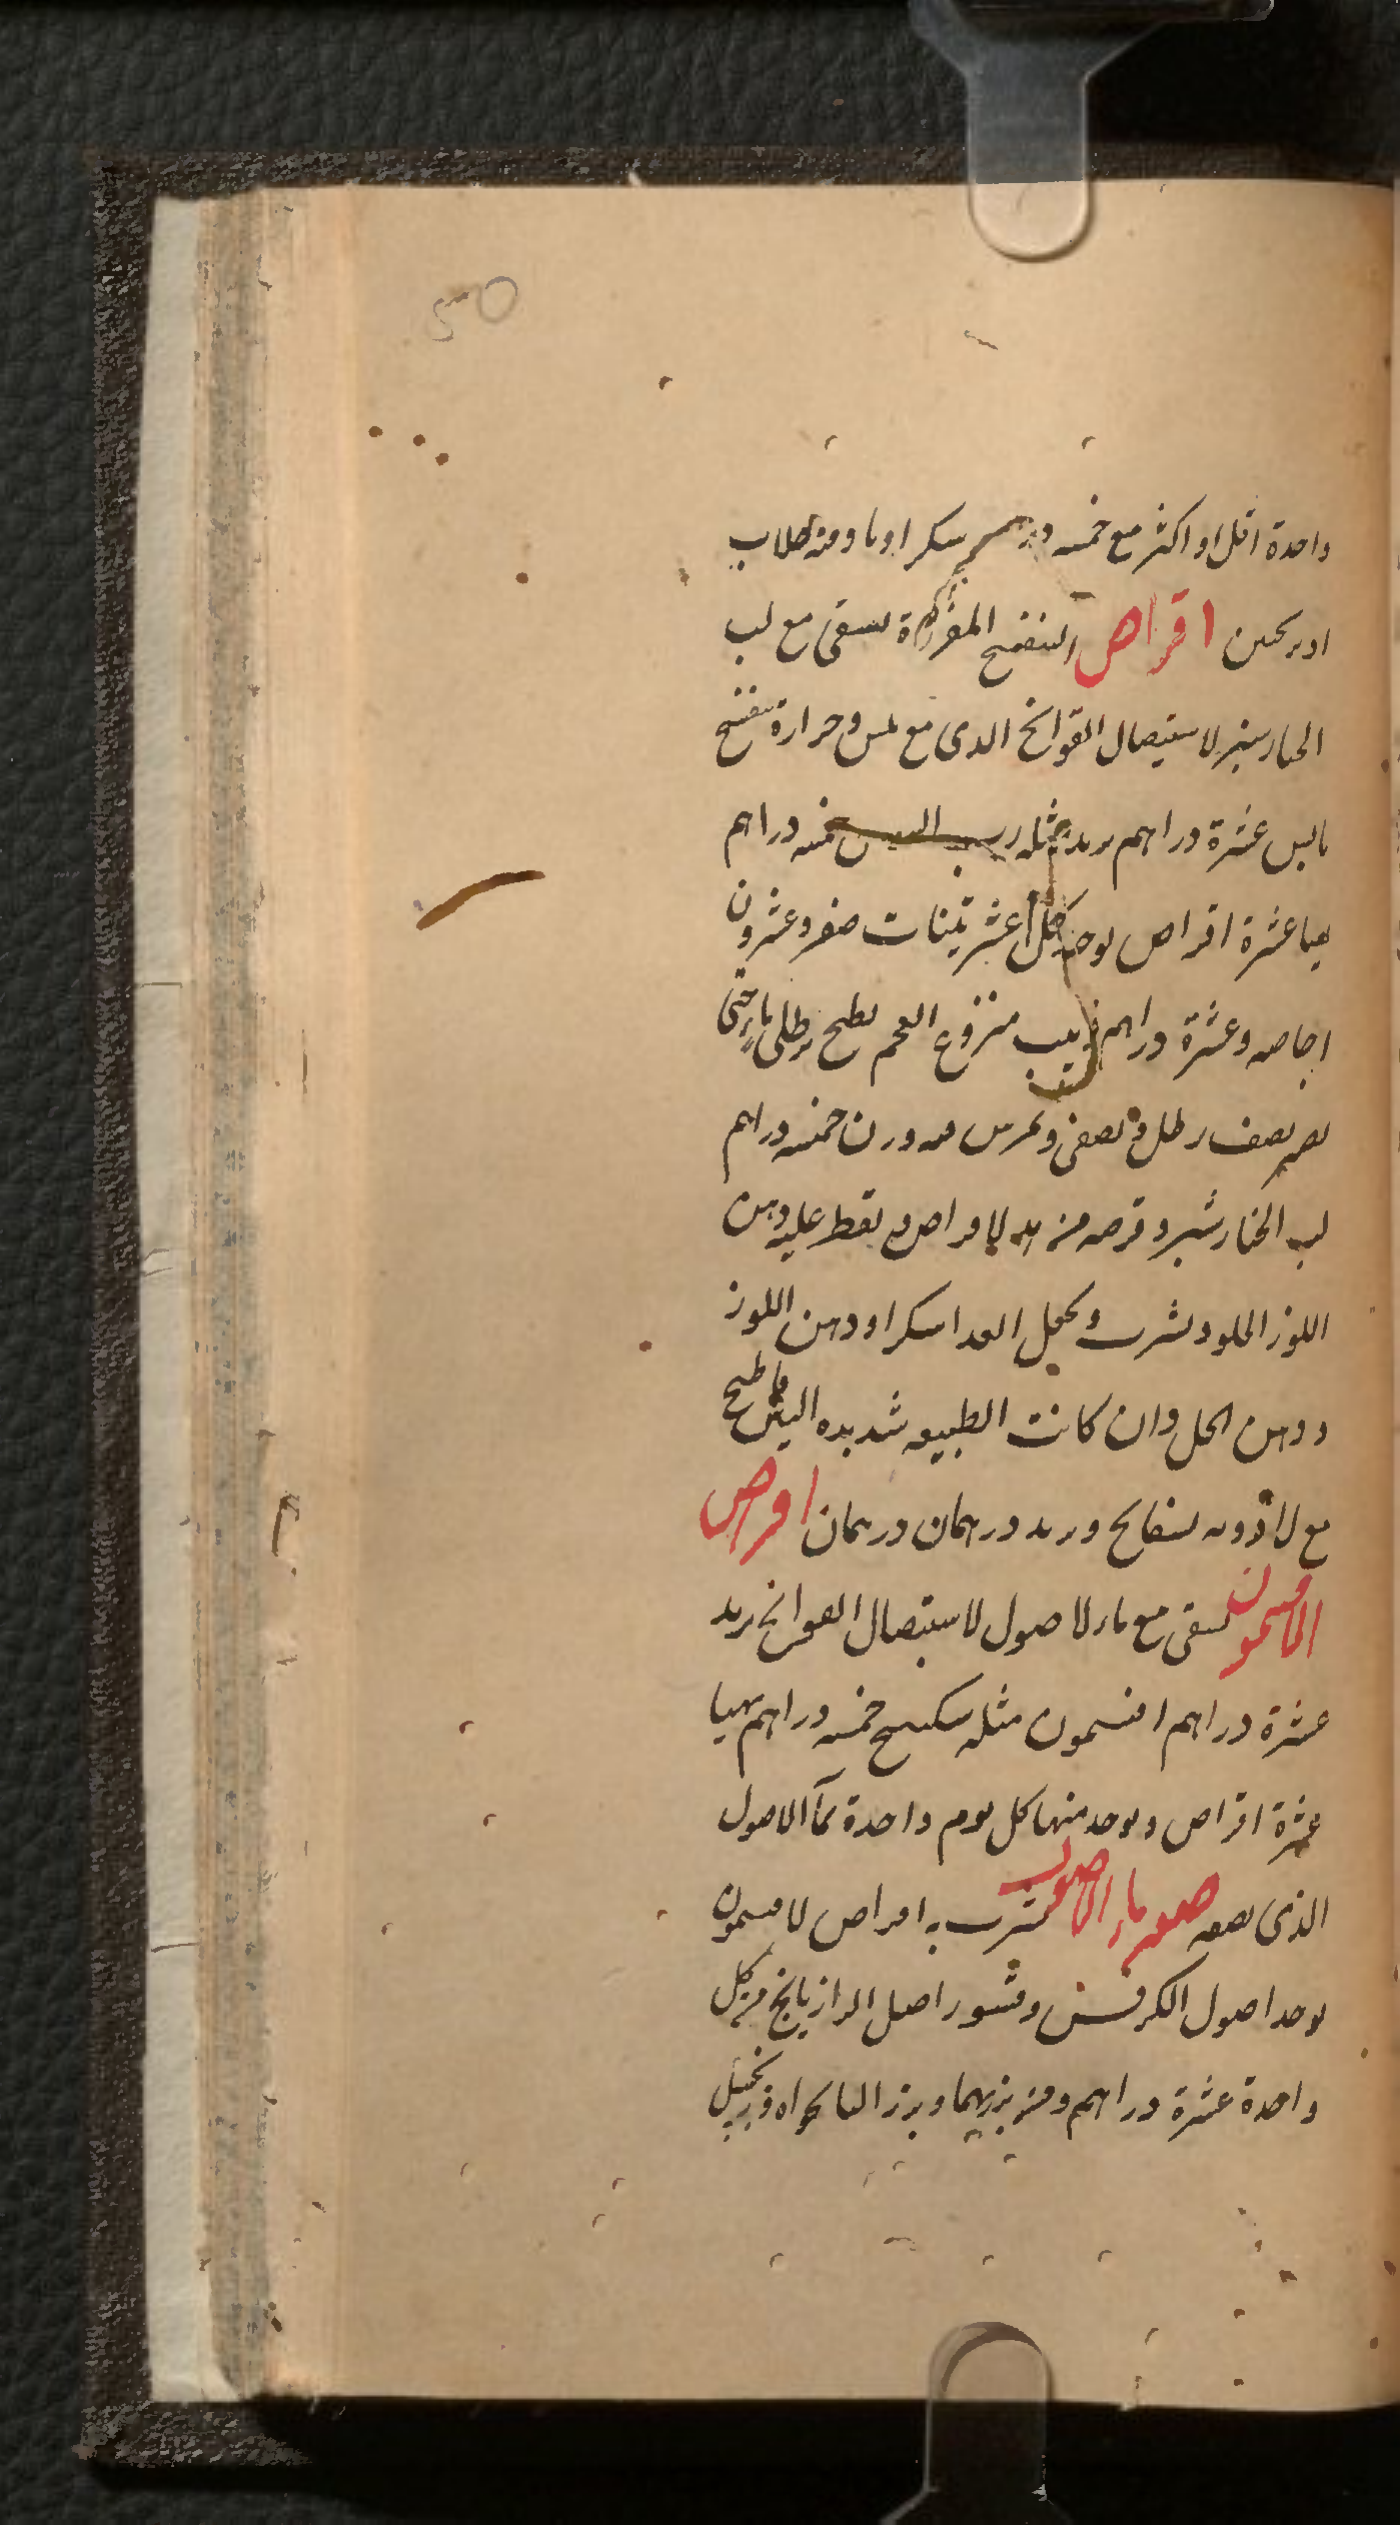 50
واحدة اقل او اكثر مع خمسه درهم سكر اوما ومنه طلاب
اقراص البنفسج المفردة يسقى مع لب
الخيار شنبر لاستيصال القوانج الذى مع يبس وحرارة بنفسج
يابس عشرة دراهم تربد مثله رب السوس خمسه دراهم
يهيا عشرة اقراص يوخذ كل عشر تينات صفر وعشرون
اجاصه وعشرة دراهم زبيب منزوع العجم يطبخ برطلى ماء حتى
يصير نصف رطل ويصفى ويمرس فيه وزن خمسه دراهم
لب الخيار شنبر وقرصه من هذه الاقراص ويقطر عليه دهن
اللوز الحلو ويشرب ويجعل الغدا سكرا ودهن اللوز
ودهن الحل وان كانت الطبيعه شديده اليبس طبخ
مع الادويه بسفايج وتربد درهمان درهمان اقراص
الافتيمون يسقى مع ماء الاصول لاستيصال القوانج تربد
عشرة دراهم افتيمون مثله سكبينج خمسه دراهم يهيا
عشرة اقراص ويوخذ منها كل يوم واحدة بمآ الاصول
الذى نصفه صفه ماء الاصول يشرب به اقراص الافتيمون
يوخذ اصول الكرفس وقشور اصل الرازيانج من كل
واحدة عشرة دراهم ومن بزريهما وبزر النانخواه وزنجبيل